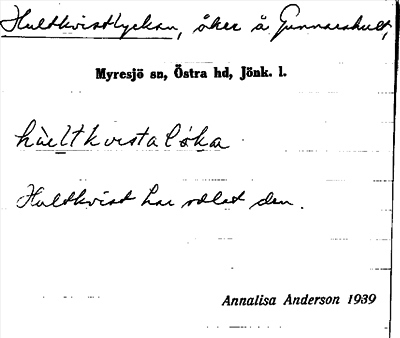 Hultkvistlyckan, åker å Gunnarshult,
Myresjö sn, Östra hd, Jönk. l.
hùltkvistalø̀ka
Hultkvist har odlat den.
Annalisa Anderson 1939